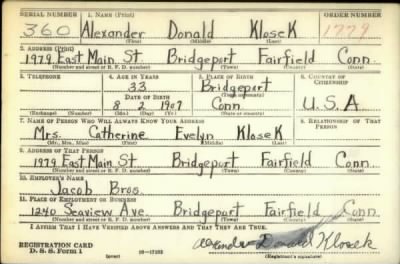 SERIAL NUMBER 1. NAME (Print) ORDER NUMBER
360 Alexander Donald Klosek 1779
(First) (Middle) (Last)
2. ADDRESS (Print)
1979 East Main St. Bridgeport Fairfield Conn.
(Number and street or R. F. D. number) (Town) (County) (State)
3. TELEPHONE 4. AGE IN YEARS 5. PLACE OF BIRTH 6. COUNTRY OF CITIZENSHIP
33 Bridgeport
DATE OF BIRTH (Town or county)
8 2 1907 Conn U.S.A.
(Exchange) (Number) (Mo.) (Day) (Yr.) (State or country)
7. NAME OF PERSON WHO WILL ALWAYS KNOW YOUR ADDRESS 8. RELATIONSHIP OF THAT PERSON
Mrs. Catherine Evelyn Klosek
(Mr., Mrs., Miss) (First) (Middle) (Last)
9. ADDRESS OF THAT PERSON
1979 East Main St. Bridgeport Fairfield Conn.
(Number and street or R. F. D. number) (Town) (County) (State)
10. EMPLOYER'S NAME
Jacob Bros.
11. PLACE OF EMPLOYMENT OR BUSINESS
1240 Seaview Ave. Bridgeport Fairfield Conn
(Number and street or R. F. D. number) (Town) (County) (State)
I AFFIRM THAT I HAVE VERIFIED ABOVE ANSWERS AND THAT THEY ARE TRUE.
REGISTRATION CARD Alexander Donald Klosek
D. S. S. Form 1 (over) (Registrant's signature)